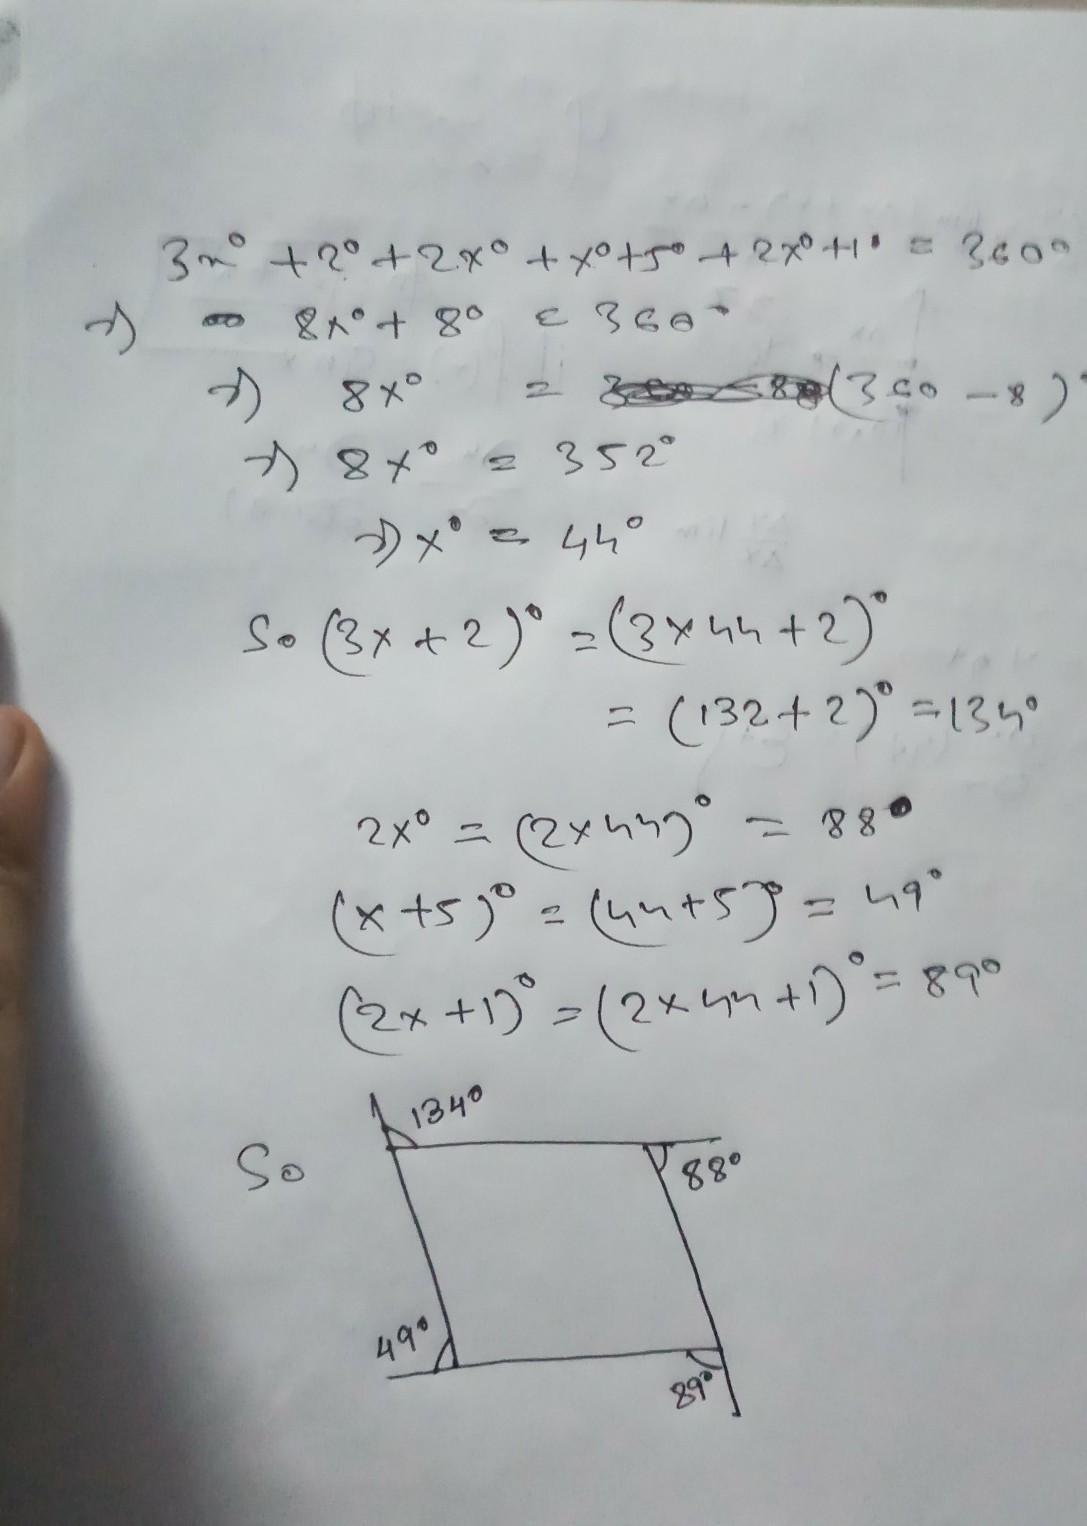 3x° + 2° + 2x° + x° + 5° + 2x° + 1° = 360°
⇒ 8x° + 8° = 360°
⇒ 8x° = (360 - 8)°
⇒ 8x° = 352°
⇒ x° = 44°
So (3x + 2)° = (3 × 44 + 2)°
= (132 + 2)° = 134°
2x° = (2 × 44)° = 88°
(x + 5)° = (44 + 5)° = 49°
(2x + 1)° = (2 × 44 + 1)° = 89°
134°
So
88°
49°
89°